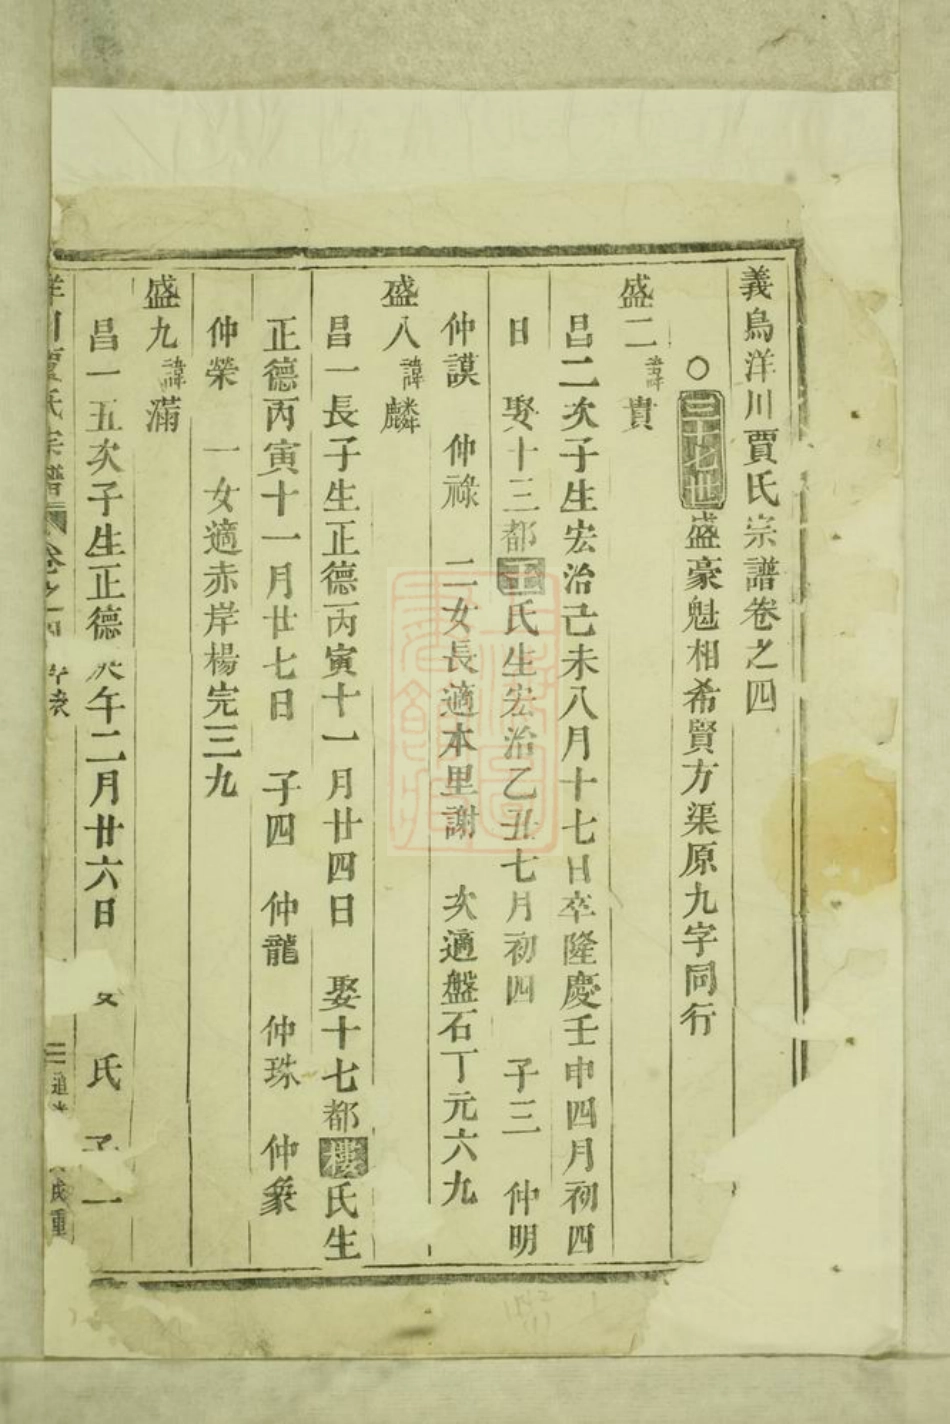 義烏洋川賈氏宗譜卷之四
○三十世盛豪魁相希賢方渠原九字同行
盛二諱貴
昌二次子生宏治己未八月十七日卒隆慶壬申四月初四
日 娶十三都王氏生宏治乙丑七月初四 子三 仲明
仲謨 仲祿 二女長適本里謝 次適盤石丁元六九
盛八諱麟
昌一長子生正德丙寅十一月廿四日 娶十七都樓氏生
正德丙寅十一月廿七日 子四 仲龍 仲珠 仲彖
仲榮 一女適赤岸楊完三九
盛九諱滿
昌一五次子生正德 午二月廿六日 氏 子一
洋川賈氏宗譜 卷之四